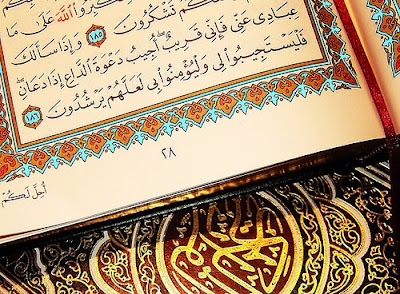 كبروا ٱللَّهَ عَلَىٰ مَا
تَشْكُرُونَ ١٨٥ وَإِذَا سَأَلَكَ
عِبَادِى عَنِّى فَإِنِّى قَرِيبٌ أُجِيبُ دَعْوَةَ ٱلدَّاعِ إِذَا دَعَانِ
فَلْيَسْتَجِيبُوا۟ لِى وَلْيُؤْمِنُوا۟ بِى لَعَلَّهُمْ يَرْشُدُونَ ١٨٦
٢٨
أُحِلَّ لَكُمْ